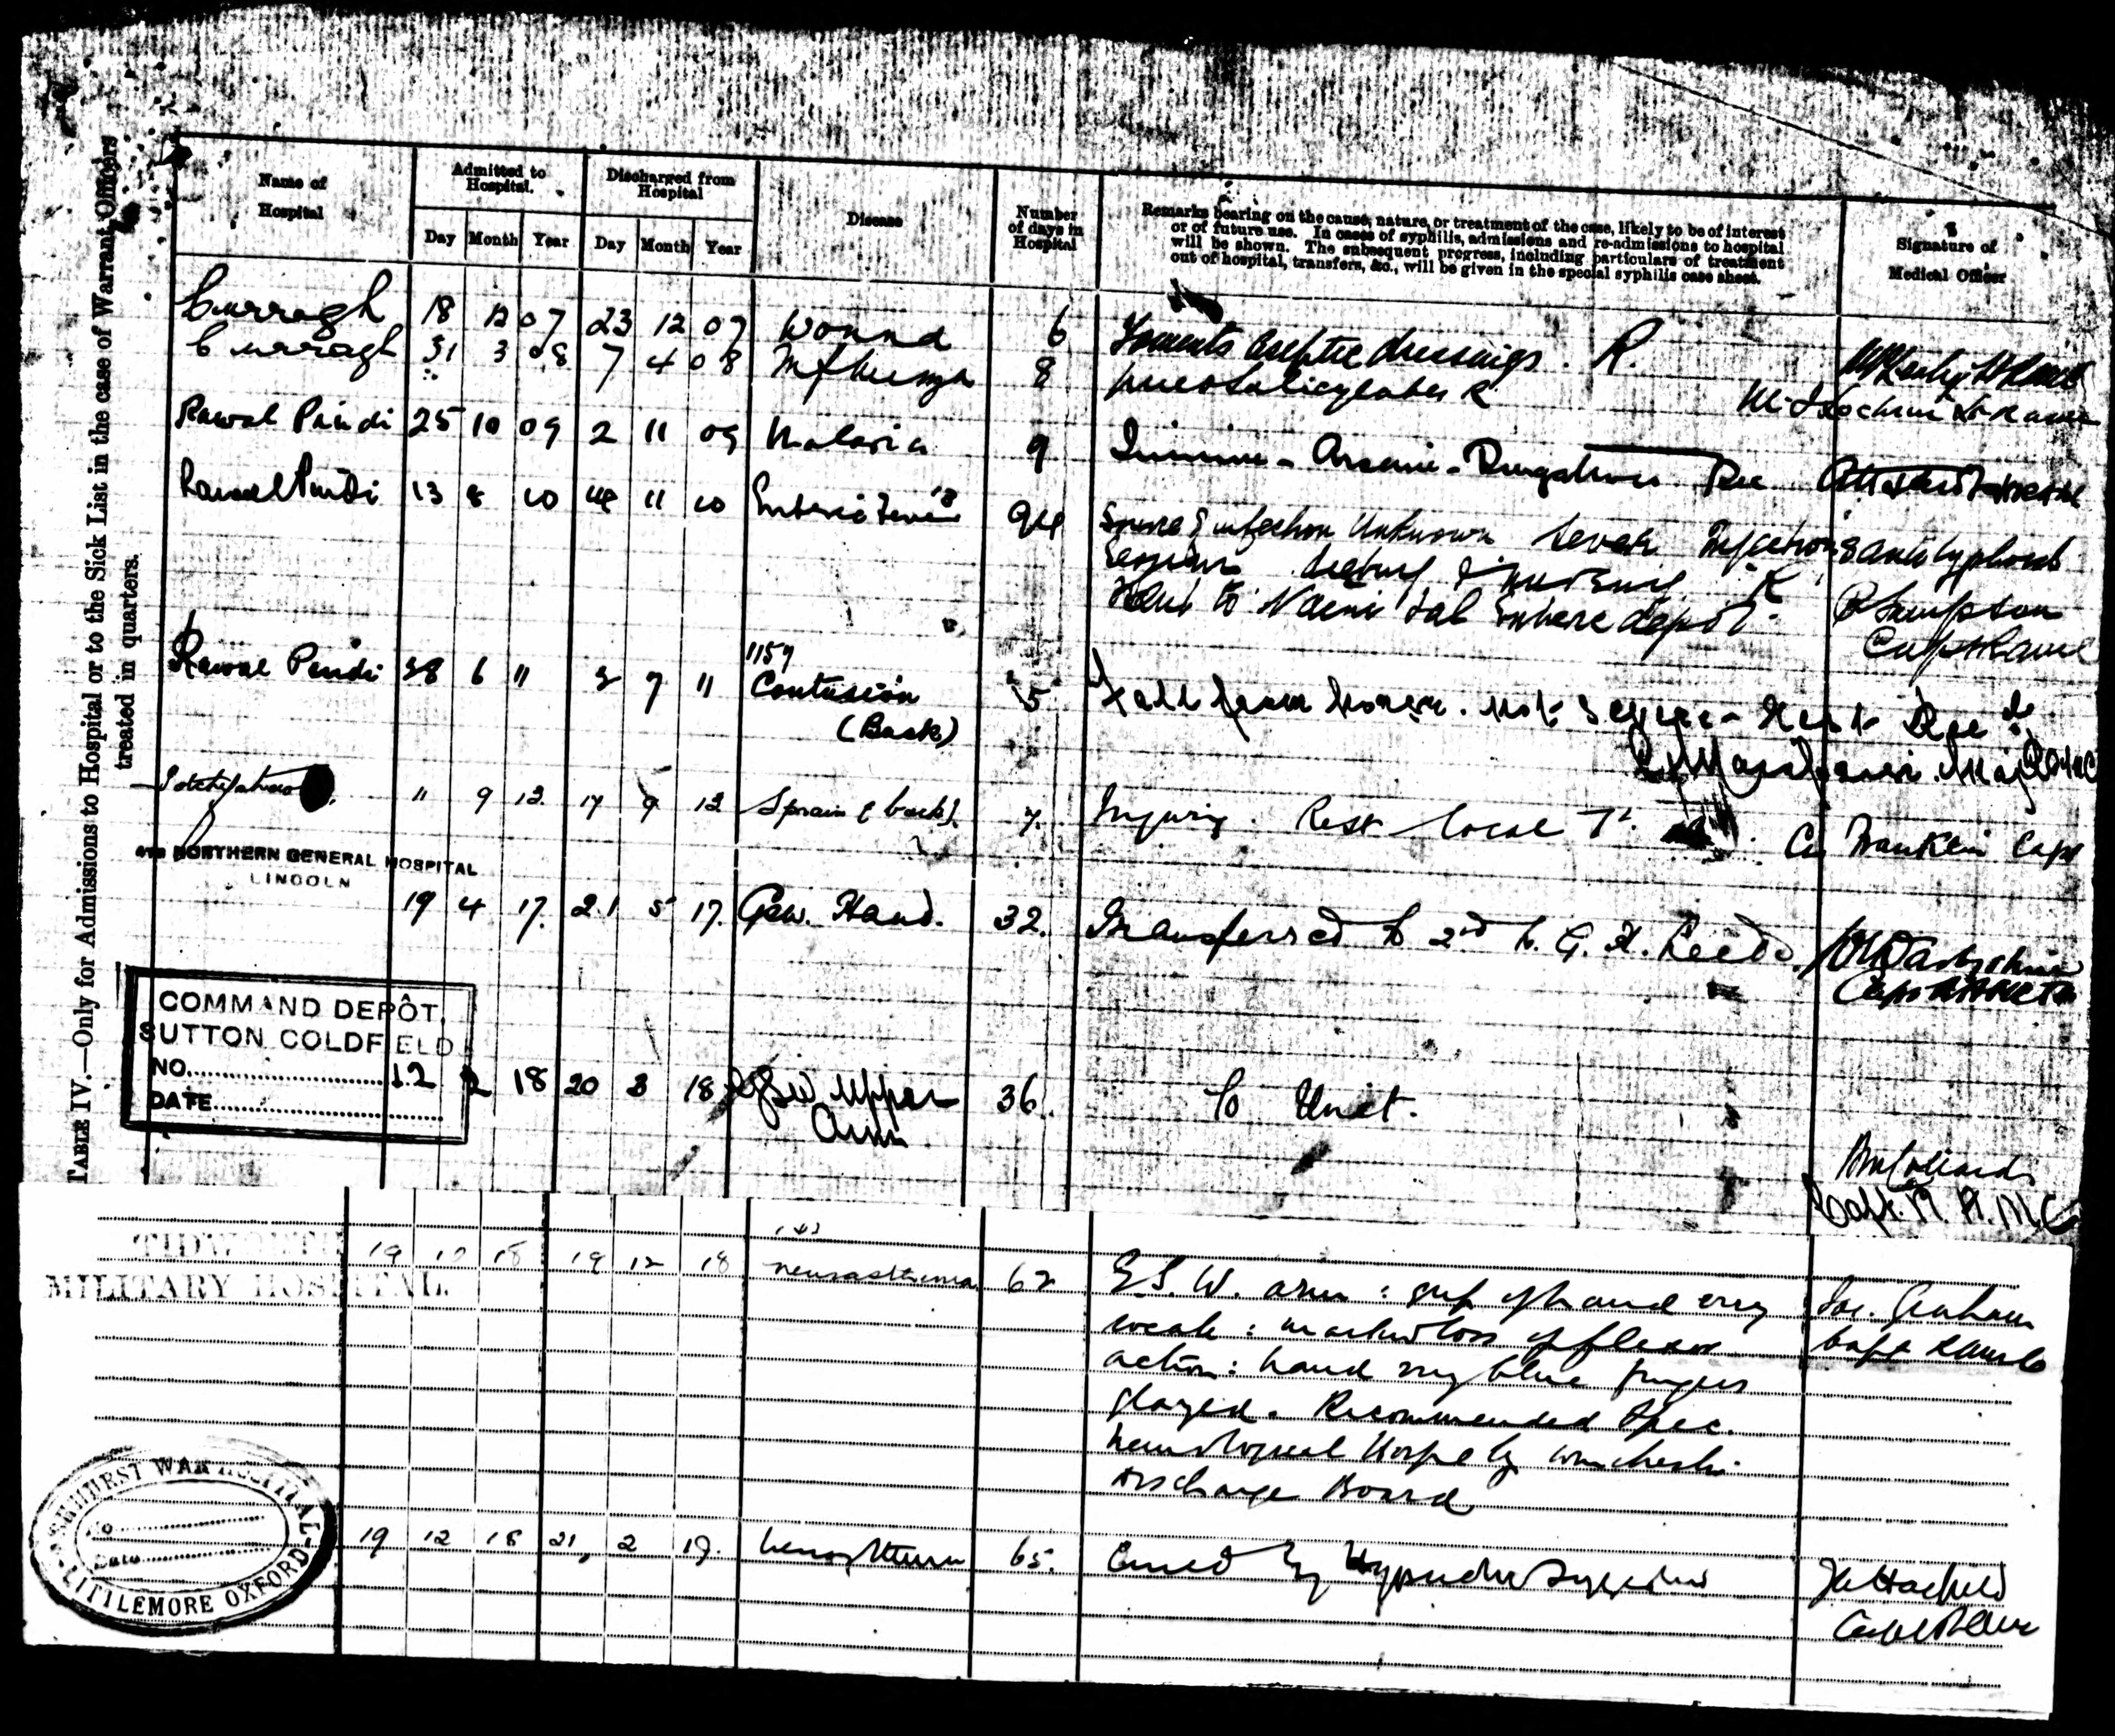 TABLE IV.—Only for Admissions to Hospital or to the Sick List in the case of Warrant Officers
treated in quarters.
Name of Hospital
Admitted to Hospital.
Discharged from Hospital
Disease
Number of days in Hospital
Remarks bearing on the cause, nature, or treatment of the case, likely to be of interest
or of future use. In cases of syphilis, admissions and re-admissions to hospital
will be shown. The subsequent progress, including particulars of treatment
out of hospital, transfers, &c., will be given in the special syphilis case sheet.
Signature of Medical Officer
Day Month Year Day Month Year
Curragh 18 12 07 23 12 07 Wound 6 Foments aseptic dressings. R.
Curragh 31 3 08 7 4 08 Influenza 8
Rawal Pindi 25 10 09 2 11 09 Malaria 9 Quinine - Arsenic -
Rawal Pindi 13 8 10 11 10 Enteric Fever 94 Source of infection unknown Seven Injections antityphoid
dieting & nursing. R
Sent to Naini Tal Enteric depot.
Sampson
Rawal Pindi 28 6 11 2 7 11 1157 Contusion 5 Fall from horse. not severe - Rest
(Back)
11 9 12 17 9 12 Sprain (back) 7. Injury. Rest local Tt. Franklin Capt
NORTHERN GENERAL HOSPITAL
LINCOLN
19 4 17. 21 5 17. GSW. Hand. 32. Transferred to 2nd N. G. H. Leeds.
Capt
COMMAND DEPÔT,
SUTTON COLDFIELD
NO. 12 2 18 20 3 18 GSW Upper 36. To Unit.
DATE
Arm
Capt. R. A. M. C
TIDWORTH
MILITARY HOSPITAL.
19 10 18 19 12 18 neurasthenia 62 G.S.W. arm : grip of hand very
weak : marked loss of flexor
action : hand very blue fingers
glazed. Recommended Spec.
Neurological Hospl by Winchester
Discharge Board
Jas. Graham
Capt RAMC
ASHHURST WAR HOSPITAL
No
Date
LITTLEMORE OXFORD
19 12 18 21 2 19. Neurasthenia 65. Cured by Hypnotic Suggestion
Hadfield
Capt RAMC